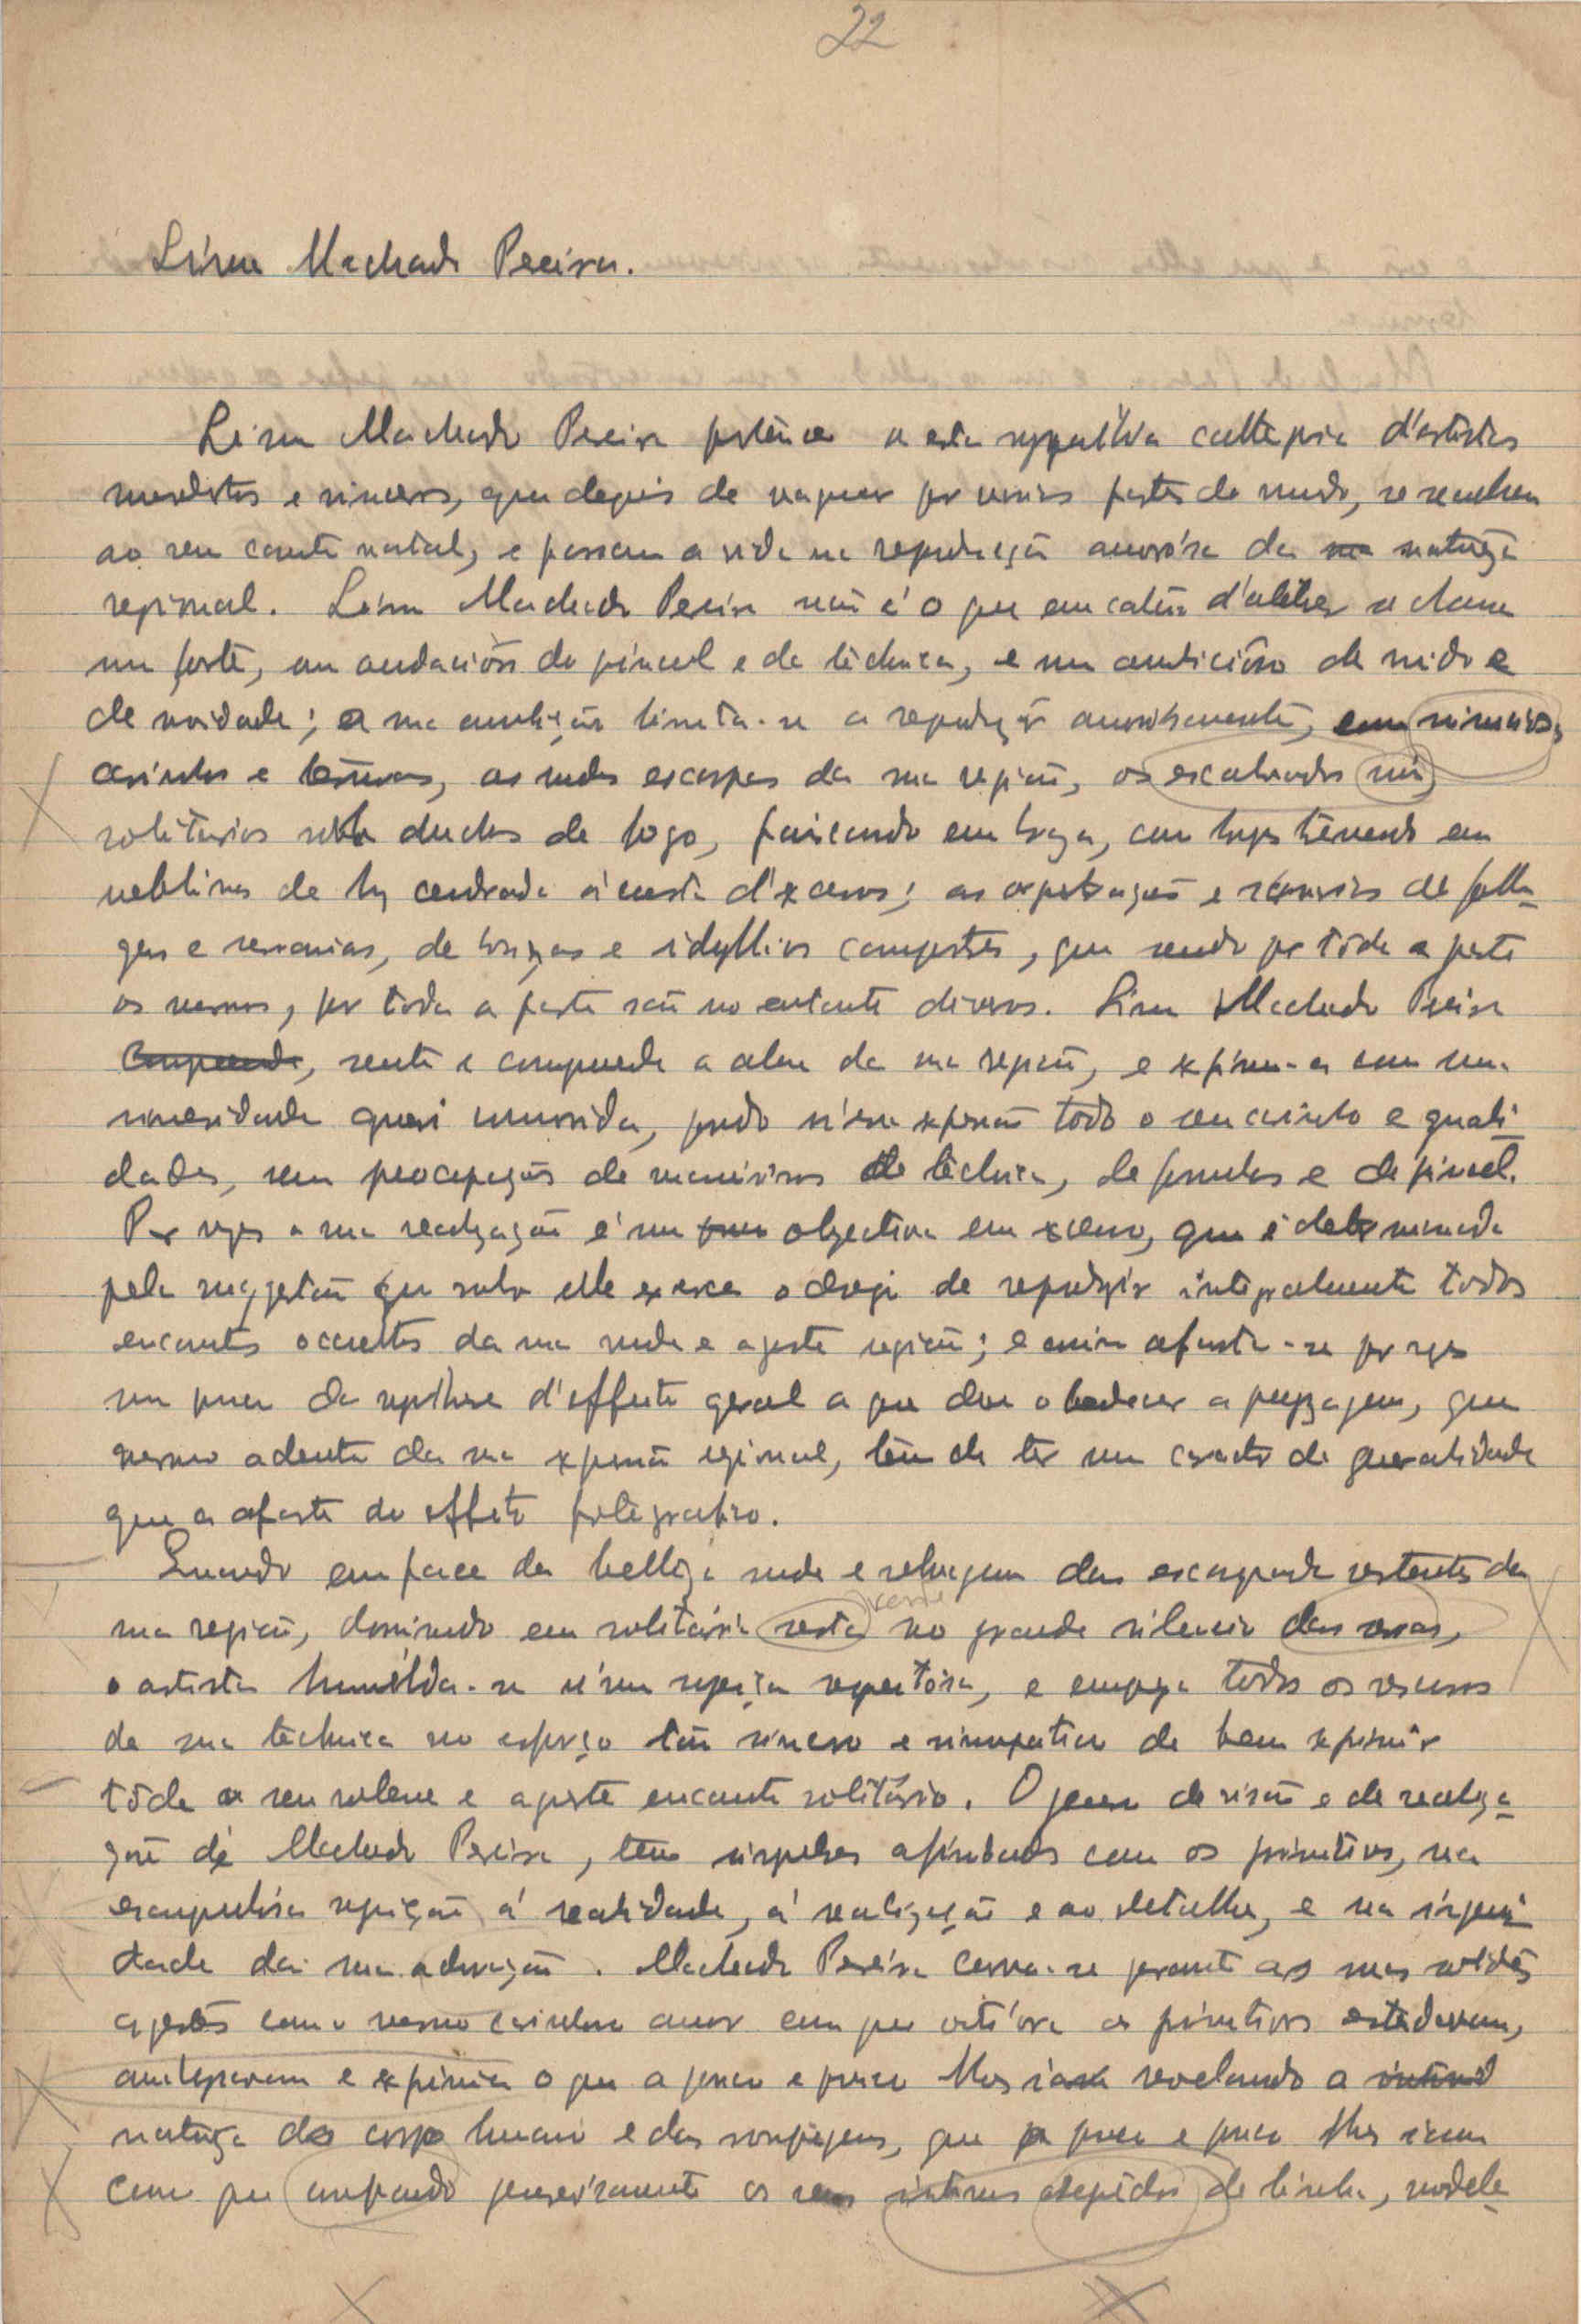 22
Lima Machado Pereira.
Lima Machado Pereira pertence a esta sympathica cathegoria d'artistas
modestos e sinceros, que depois de vaguear por varias partes do mundo, se recolhem
ao seu canto natal, e passam a vida na reprodução amorósa da natureza
regional. Lima Machado Pereira não é o que em calão d'atelier se chama
um forte, um audacioso do pincel e da téchnica, e um ambicioso de ruido e
de vaidade; a sua ambição limita-se a reproduzir amorosamente, com
carinhos e ternuras, as rudes escarpas da sua região, os escalvados nús
solitarios sob duches de fogo, faiscando em braza, com luz tremendo em
neblinas de luz cendrada á custa d'excesso; as e de folha-
gem e serranias, de e idyllios campestres, que sendo por tôda a parte
os mesmos, por toda a parte são no entanto diversos. Lima Machado Pereira
comprende, sente e comprende a alma da sua região, e exprime-a com uma
sinceridade quasi commovida, pondo n'essa expressão todo o seu carinho e quali-
dades, sem preocupações de maneirismos de téchnica, de formulas e de pincel.
Por vezes a sua realização é um pouco objectiva em excesso, que é determinada
pela suggestão que sobre elle exerce o desejo de reproduzir integralmente todos
encantos occultos da sua rude e agreste região; e assim afasta-se por vezes
um pouco da synthese d'effeito geral a que deve obedecer a payzagem, que
mesmo adentro da sua expressão regional, tem de ter um caracter de generalidade
que a afaste do effeito fotografico.
Quando em face da belleza rude e selvagem das escarpadas vertentes da
sua região, dormindo em solitária sesta no grande silencio das cousas,
o artista humilda-se n'uma sujeição respeitósa, e emprega todos os recursos
da sua téchnica no esforço tão sincero e simpatico de bem exprimir
tôda o seu solene e agreste encanto solitário. O genero de visão e de realiza-
ção de Machado Pereira, tem singulares afinidades com os primitivos, na
escrupulósa sujeição á realidade, á realização e ao detalhe, e na ingenui-
dade da sua adoração. Machado Pereira curva-se perante as suas solidões
agrestes com o mesmo carinhoso amor com que outróra os primitivos estudavam,
e exprimiam o que a pouco e pouco lhes ia revelando a
natureza do corpo humano e das roupagens, que a pouco e pouco lhes iam
como que amparando os seus intimos segredos de linha, modela-